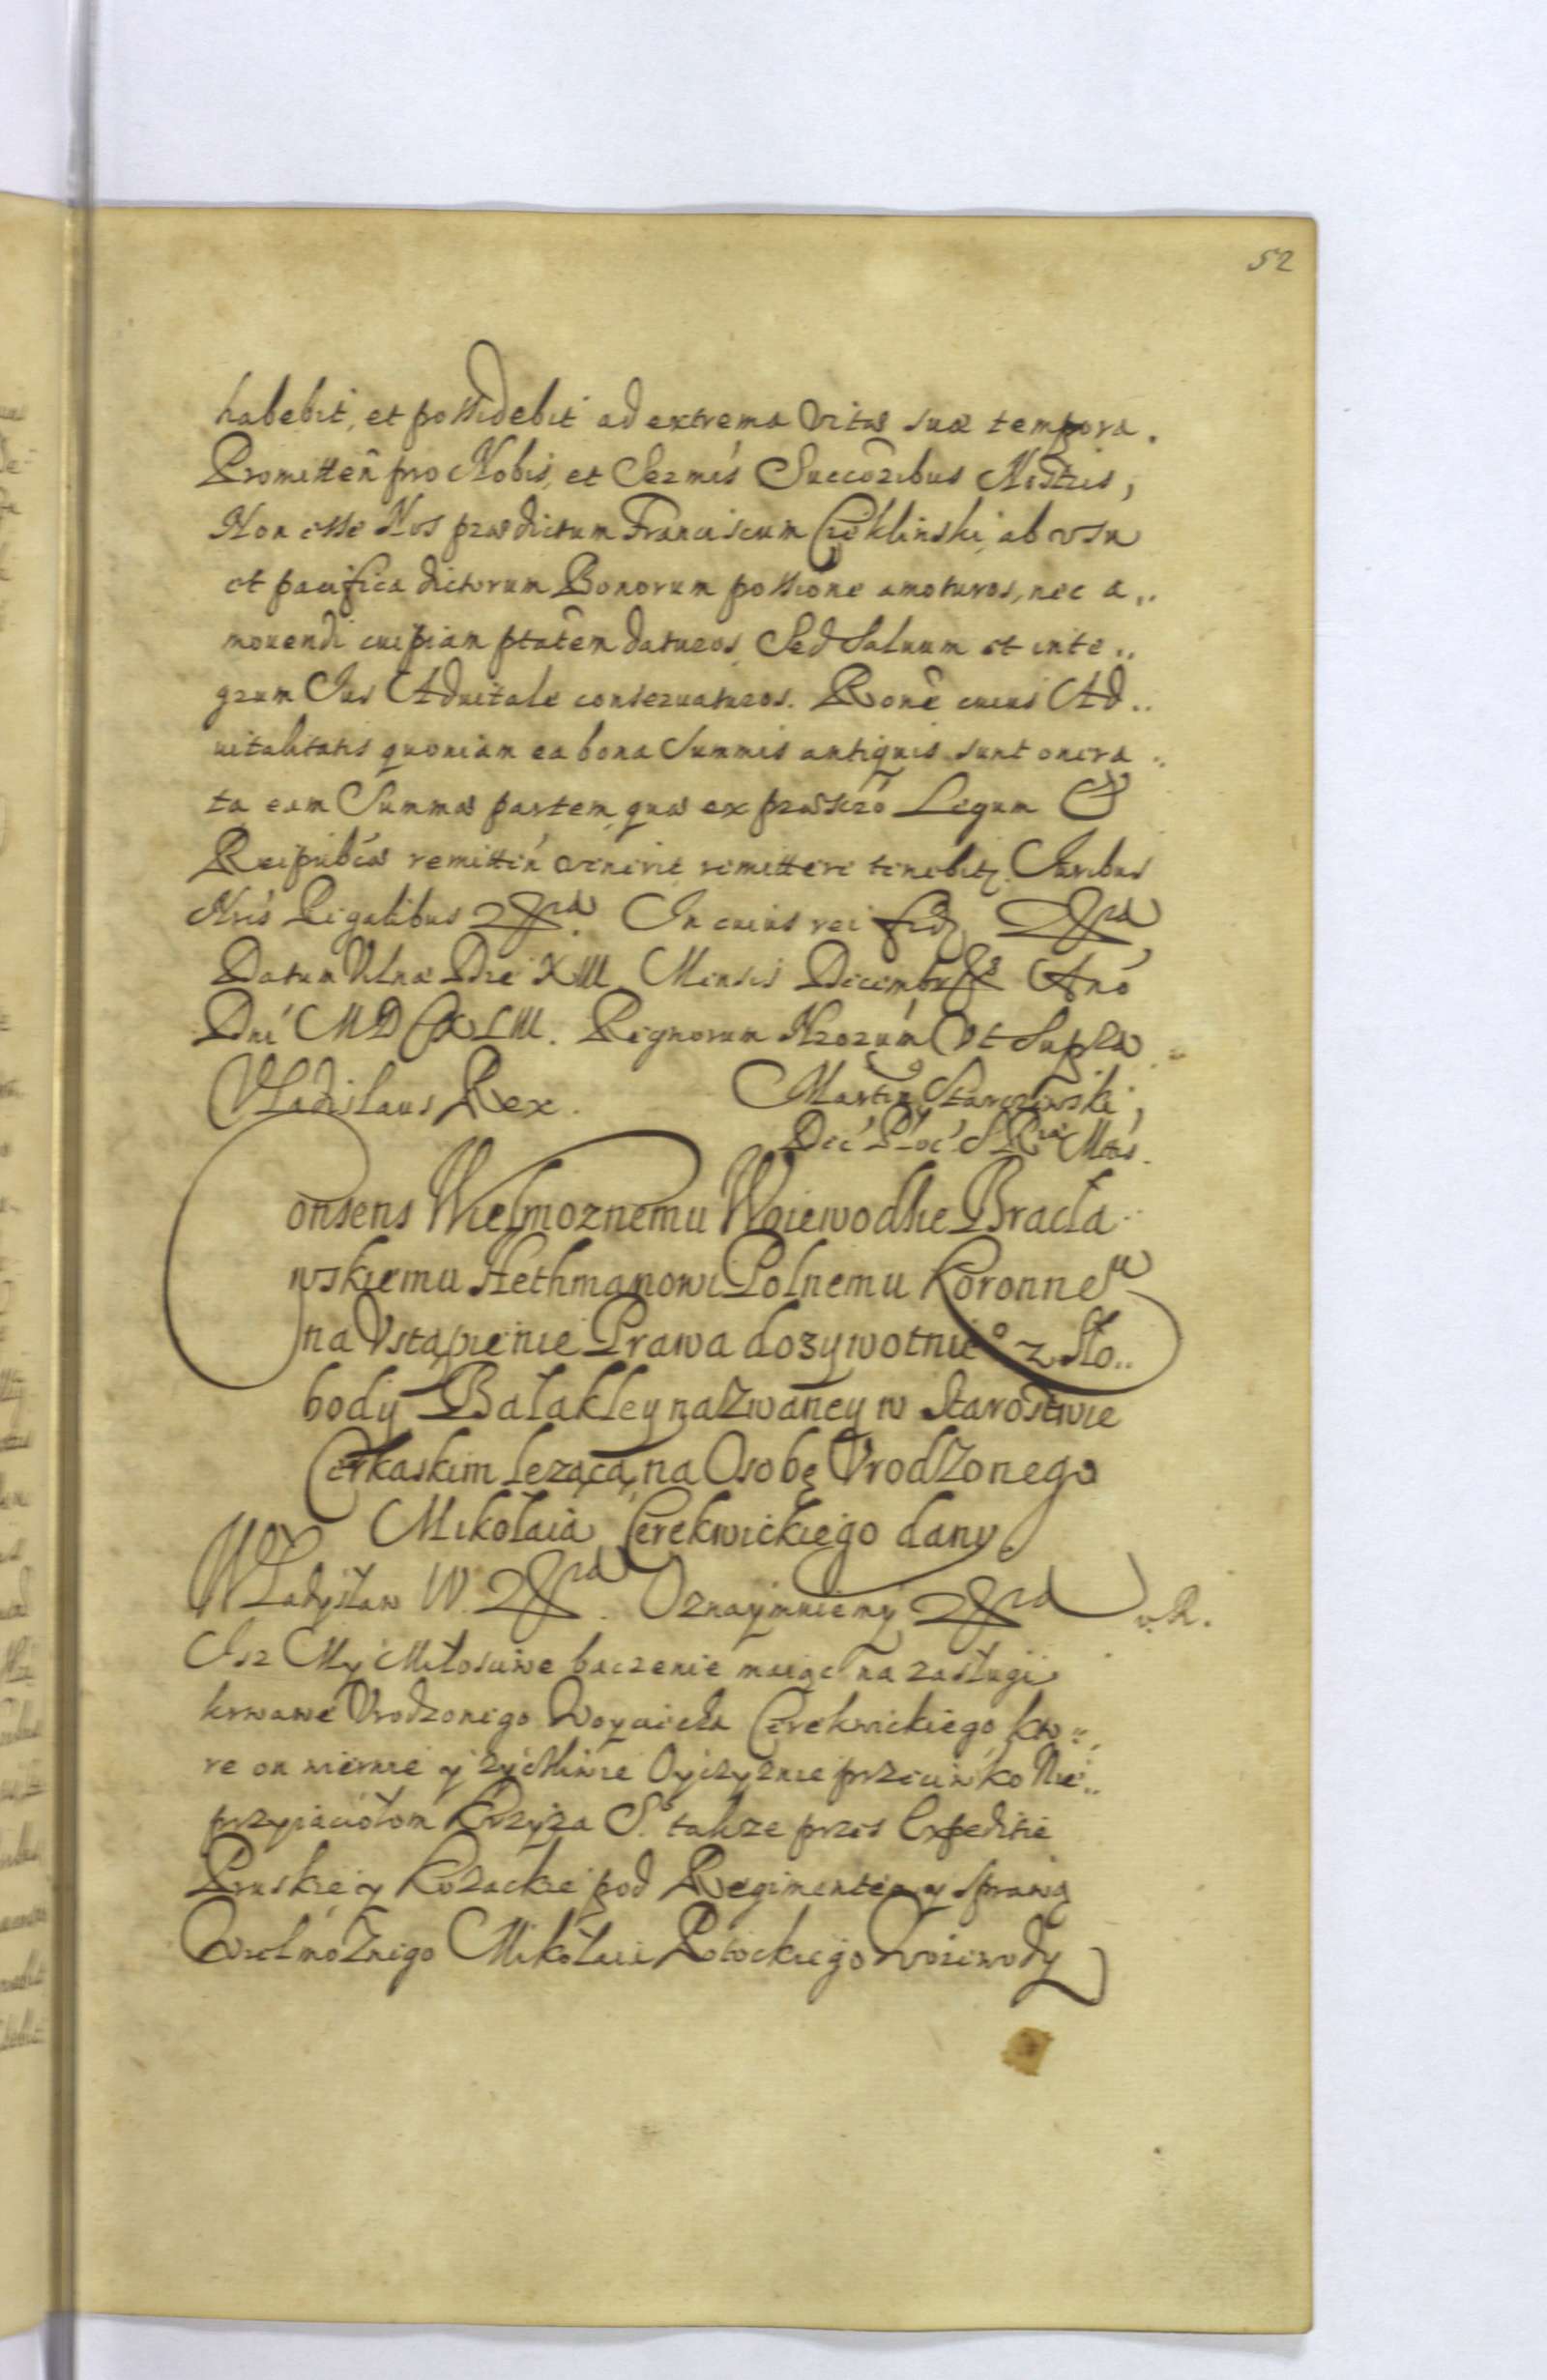 52
habebit, et possidebit ad extrema Vitæ suæ tempora.
Promitteñ pro Nobis, et Sermis Succoribus Nostris,
Non esse Nos prædictum Franciscum Ciéklinski, ab vsu
et pacifica dictorum Bonorum possione amoturos, nec a..
mouendi cuipiam ptatem daturos, Sed Saluum et inte..
grum Ius Aduitale conseruaturos. Rone cuius Ad..
uitalitatis quoniam ea bona Summis antiquis sunt onera..
ta eam Summæ partem, quæ ex præscro Legum &
Reipubcæ remitteñ venerit remittere tenebitr. Iuribus
Nris Regalibus &ra. In cuius rei fid. &ra
Datum Vilnæ Die XIII Mensis Decembris Ano
Dni MDCXLIII. Regnorum Nrorum Vt Supra
Vladislaus Rex.
Martin Starczewski,
Dec' Ploc' S R Mtis.
Consens Wielmoznemu Woiewodzie Bracła..
wskiemu Hethmanowi Polnemu Koronneu
na Vstąpienie Prawa dozywotnieo z Sło..
body Bałakley nazwaney w Starostwie
Cerkaskim lezącą, na Osobę Vrodzonego
Mikołaia Cerekwickiego dany.
Władysław IV. &ra. Oznaymuiemy &ra
w. R.
Isz My Miłosciwe baczenie maiąc na zasługi
krwawe Vrodzonego Woyciecha Cerekwickiego, kto..
re on wiernie y zyczliwie Oyczyznie przeciwko Nie..
przyiaciołom Krzyża S. takze przes Expeditie
Pruskie y Kozackie pod Regimentem y sprawą
Wielmożnego Mikołaia Potockiego Woiewody